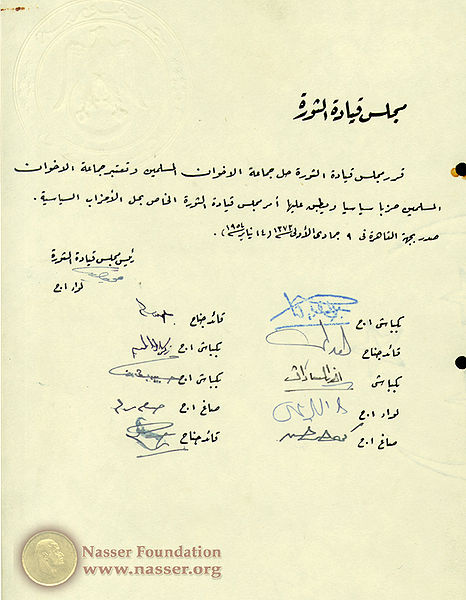 مجلس قيادة الثورة
قرر مجلس قيادة الثورة حل جماعة الاخوان المسلمين وتعتبر جماعة الاخوان
المسلمين حزبا سياسيا ويطبق عليها أمر مجلس قيادة الثورة الخاص بحل الأحزاب السياسية.
صدر بجهة القاهرة فى ٩ جمادى الأولى ١٣٧٣ (١٤ يناير ١٩٥٤).
رئيس مجلس قيادة الثورة
لواء ا.ح
بكباشى ا.ح
قائد جناح
قائد جناح
بكباشى ا.ح زكريا
بكباشى أنور السادات
بكباشى ا.ح
لواء ا.ح
صاغ ا.ح
صاغ ا.ح
قائد جناح
Nasser Foundation
www.nasser.org